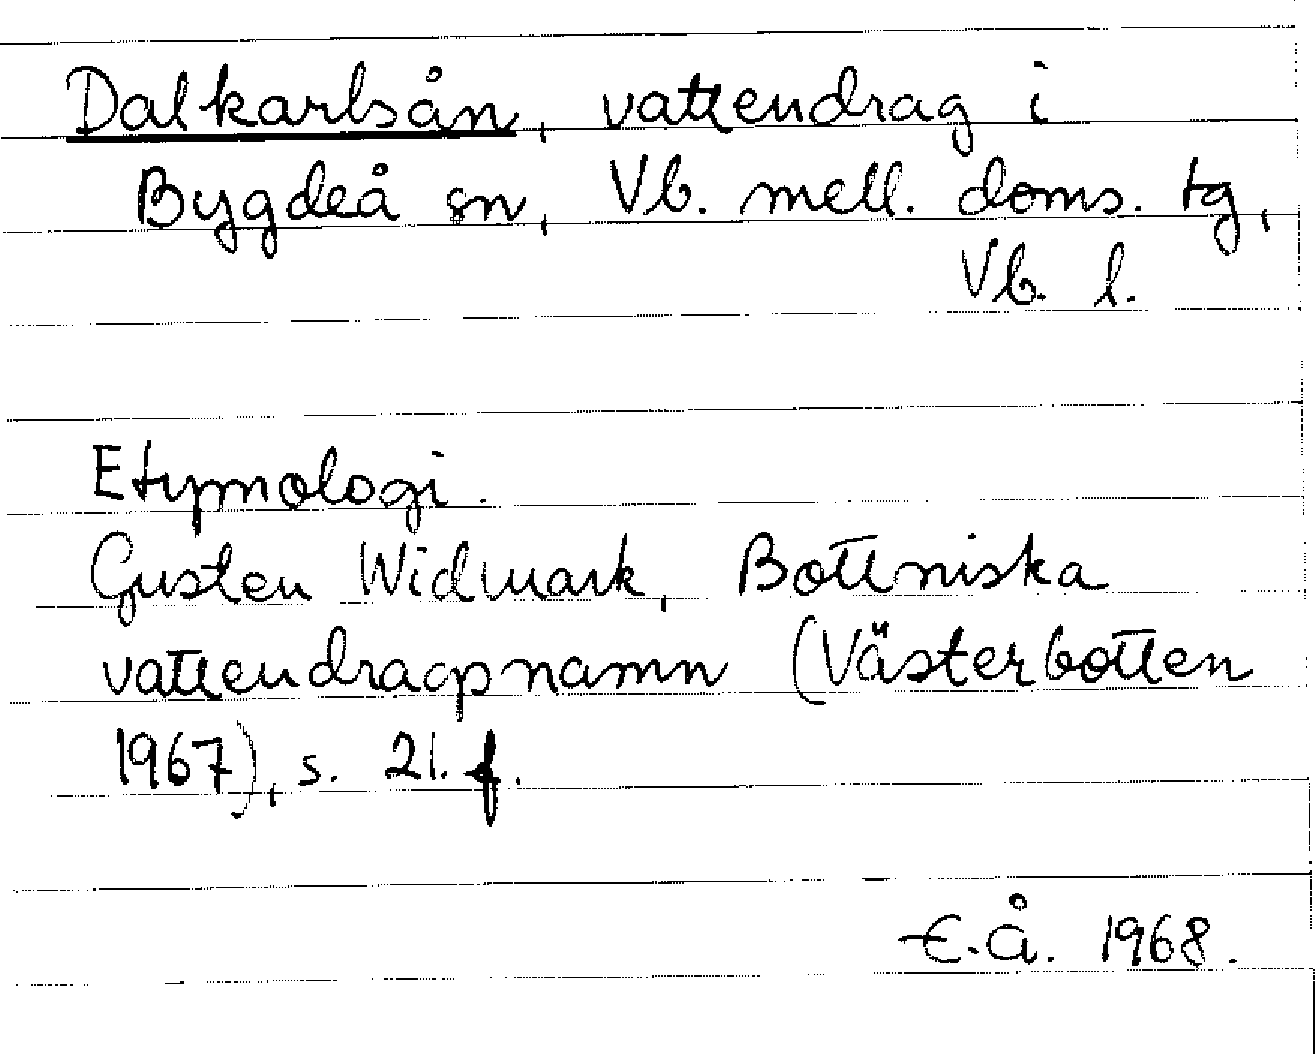 Dalkarlsån, vattendrag i
Bygdeå sn, Vb. mell. doms. tg,
Vb. l.
Etymologi.
Gusten Widmark, Bottniska
vattendragsnamn (Västerbotten
1967), s. 21. f.
E.Å. 1968.